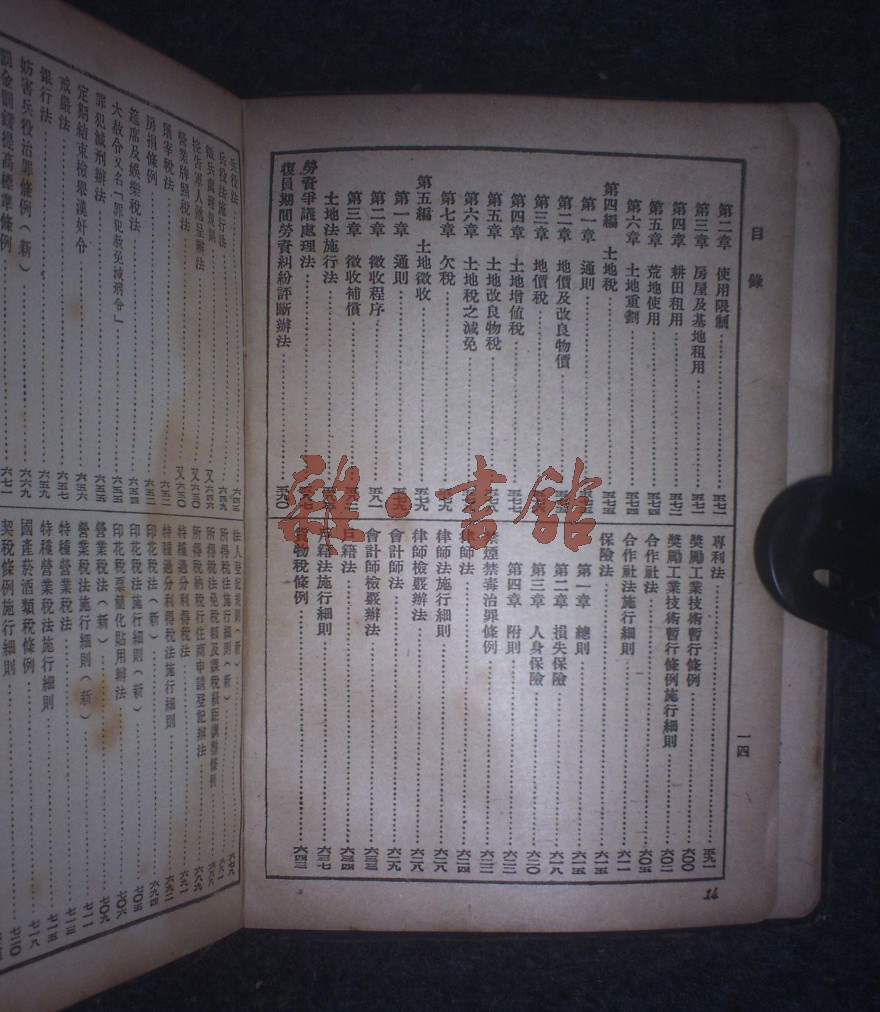 目錄
第二章 使用限制 五七一
第三章 房屋及基地租用 五七一
第四章 耕田租用 五七二
第五章 荒地使用 五七四
第六章 土地重劃 五七四
第四編 土地稅 五七五
第一章 通則
第二章 地價及改良物價
第三章 地價稅
第四章 土地增值稅 五七七
第五章 土地改良物稅 五七八
第六章 土地稅之減免
第七章 欠稅
第五編 土地徵收 五七九
第一章 通則 五七九
第二章 徵收程序 五八一
第三章 徵收補償
土地法施行法
勞資爭議處理法
復員期間勞資糾紛評斷辦法 五九〇
專利法 五九一
獎勵工業技術暫行條例 六〇〇
獎勵工業技術暫行條例施行細則 六〇二
合作社法 六〇五
合作社法施行細則 六一一
保險法 六一五
第一章 總則 六一五
第二章 損失保險 六一八
第三章 人身保險 六二〇
第四章 附則 六二二
禁煙禁毒治罪條例 六二二
律師法 六二四
律師法施行細則 六二八
律師檢覈辦法 六二八
會計師法 六二九
會計師檢覈辦法 六三三
戶籍法 六三四
戶籍法施行細則 六三七
貨物稅條例 六四三
一四
14
兵役法
兵役法施行法 六四九
徵兵 規則 又六五六
控告軍人遞呈辦法 又六五〇
營業牌照稅法 又六五〇
屠宰稅法 六五二
房捐條例
筵席及娛樂稅法
大赦令又名「罪犯赦免減刑令」 六五五
罪犯減刑辦法 六五五
定期結束檢舉漢奸令 六五六
戒嚴法 六五七
銀行法 六五九
妨害兵役治罪條例(新) 六六九
罰金罰鍰提高標準條例 六七一
法人登記規則(新) 六七八
所得稅法施行細則(新)
所得稅法免稅額及課稅級距調整條例
所得稅納稅行住商申請登記辦法 六八九
特種過分利得稅法 六九一
特種過分利得稅法施行細則 六九二
印花稅法(新) 六九四
印花稅法施行細則(新) 七〇五
印花稅票簡化貼用辦法 七〇六
營業稅法(新) 七〇九
營業稅法施行細則(新) 七一一
特種營業稅法 七一三
特種營業稅法施行細則 七一五
國產菸酒類稅條例 七一八
契稅條例施行細則 七二〇
雜·書館